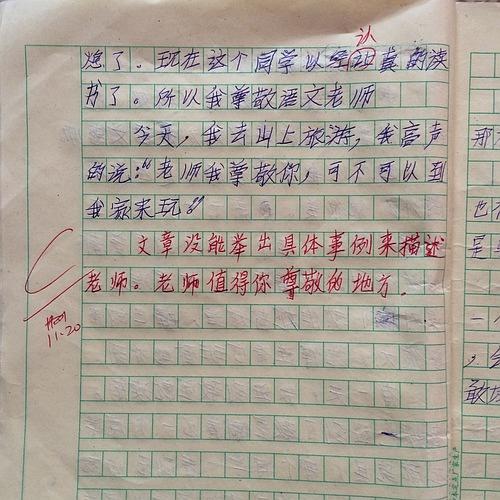 认
熄了。现在这个同学以经认真的读
书了。所以我尊敬语文老师
今天，我去山上旅游，我高声
的说:“老师我尊敬你，可不可以到
我家来玩”
文章没能举出具体事例来描述
老师。老师值得你尊敬的地方.
11.20
那
也
是
一
，
敢